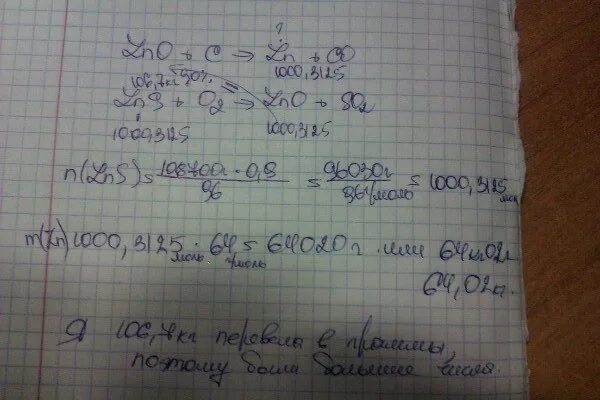 ?
ZnO + C → Zn + CO
106,7кг 90% 1000,3125
ZnS + O₂ → ZnO + SO₂
1000,3125 1000,3125
n(ZnS) = 106700г · 0,9 / 96 = 96030г / 96г/моль = 1000,3125 моль
m(Zn) 1000,3125 моль · 64 г/моль = 64020 г. или 64кг02г
64,02кг.
Я 106,7кг перевела в граммы,
поэтому были большие числа.